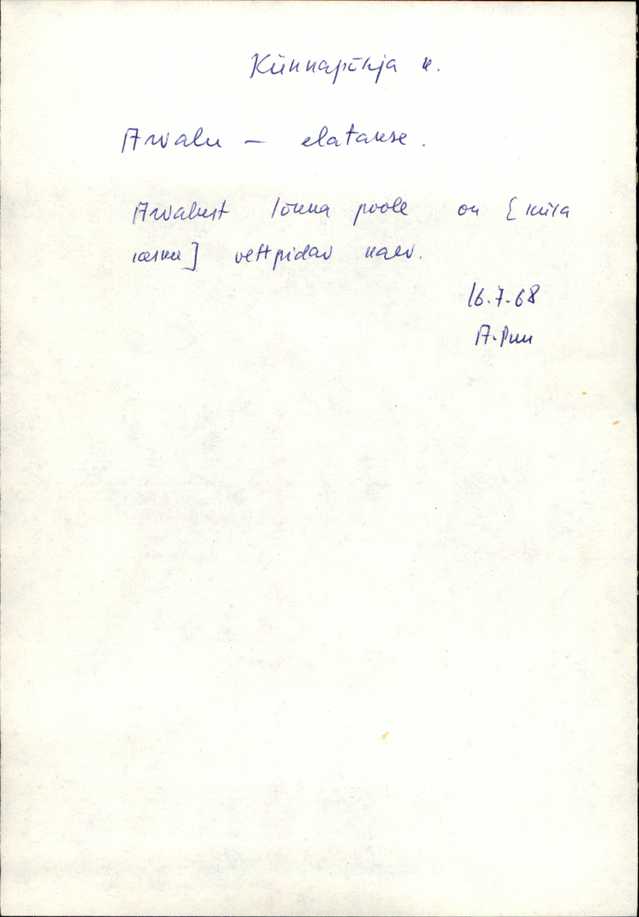 Künnapõhja k.
Arvalu — elatakse.
Arvalust lõuna poole on [küla
keskel] vettpidav kaev.
16.7.68
A. Puu